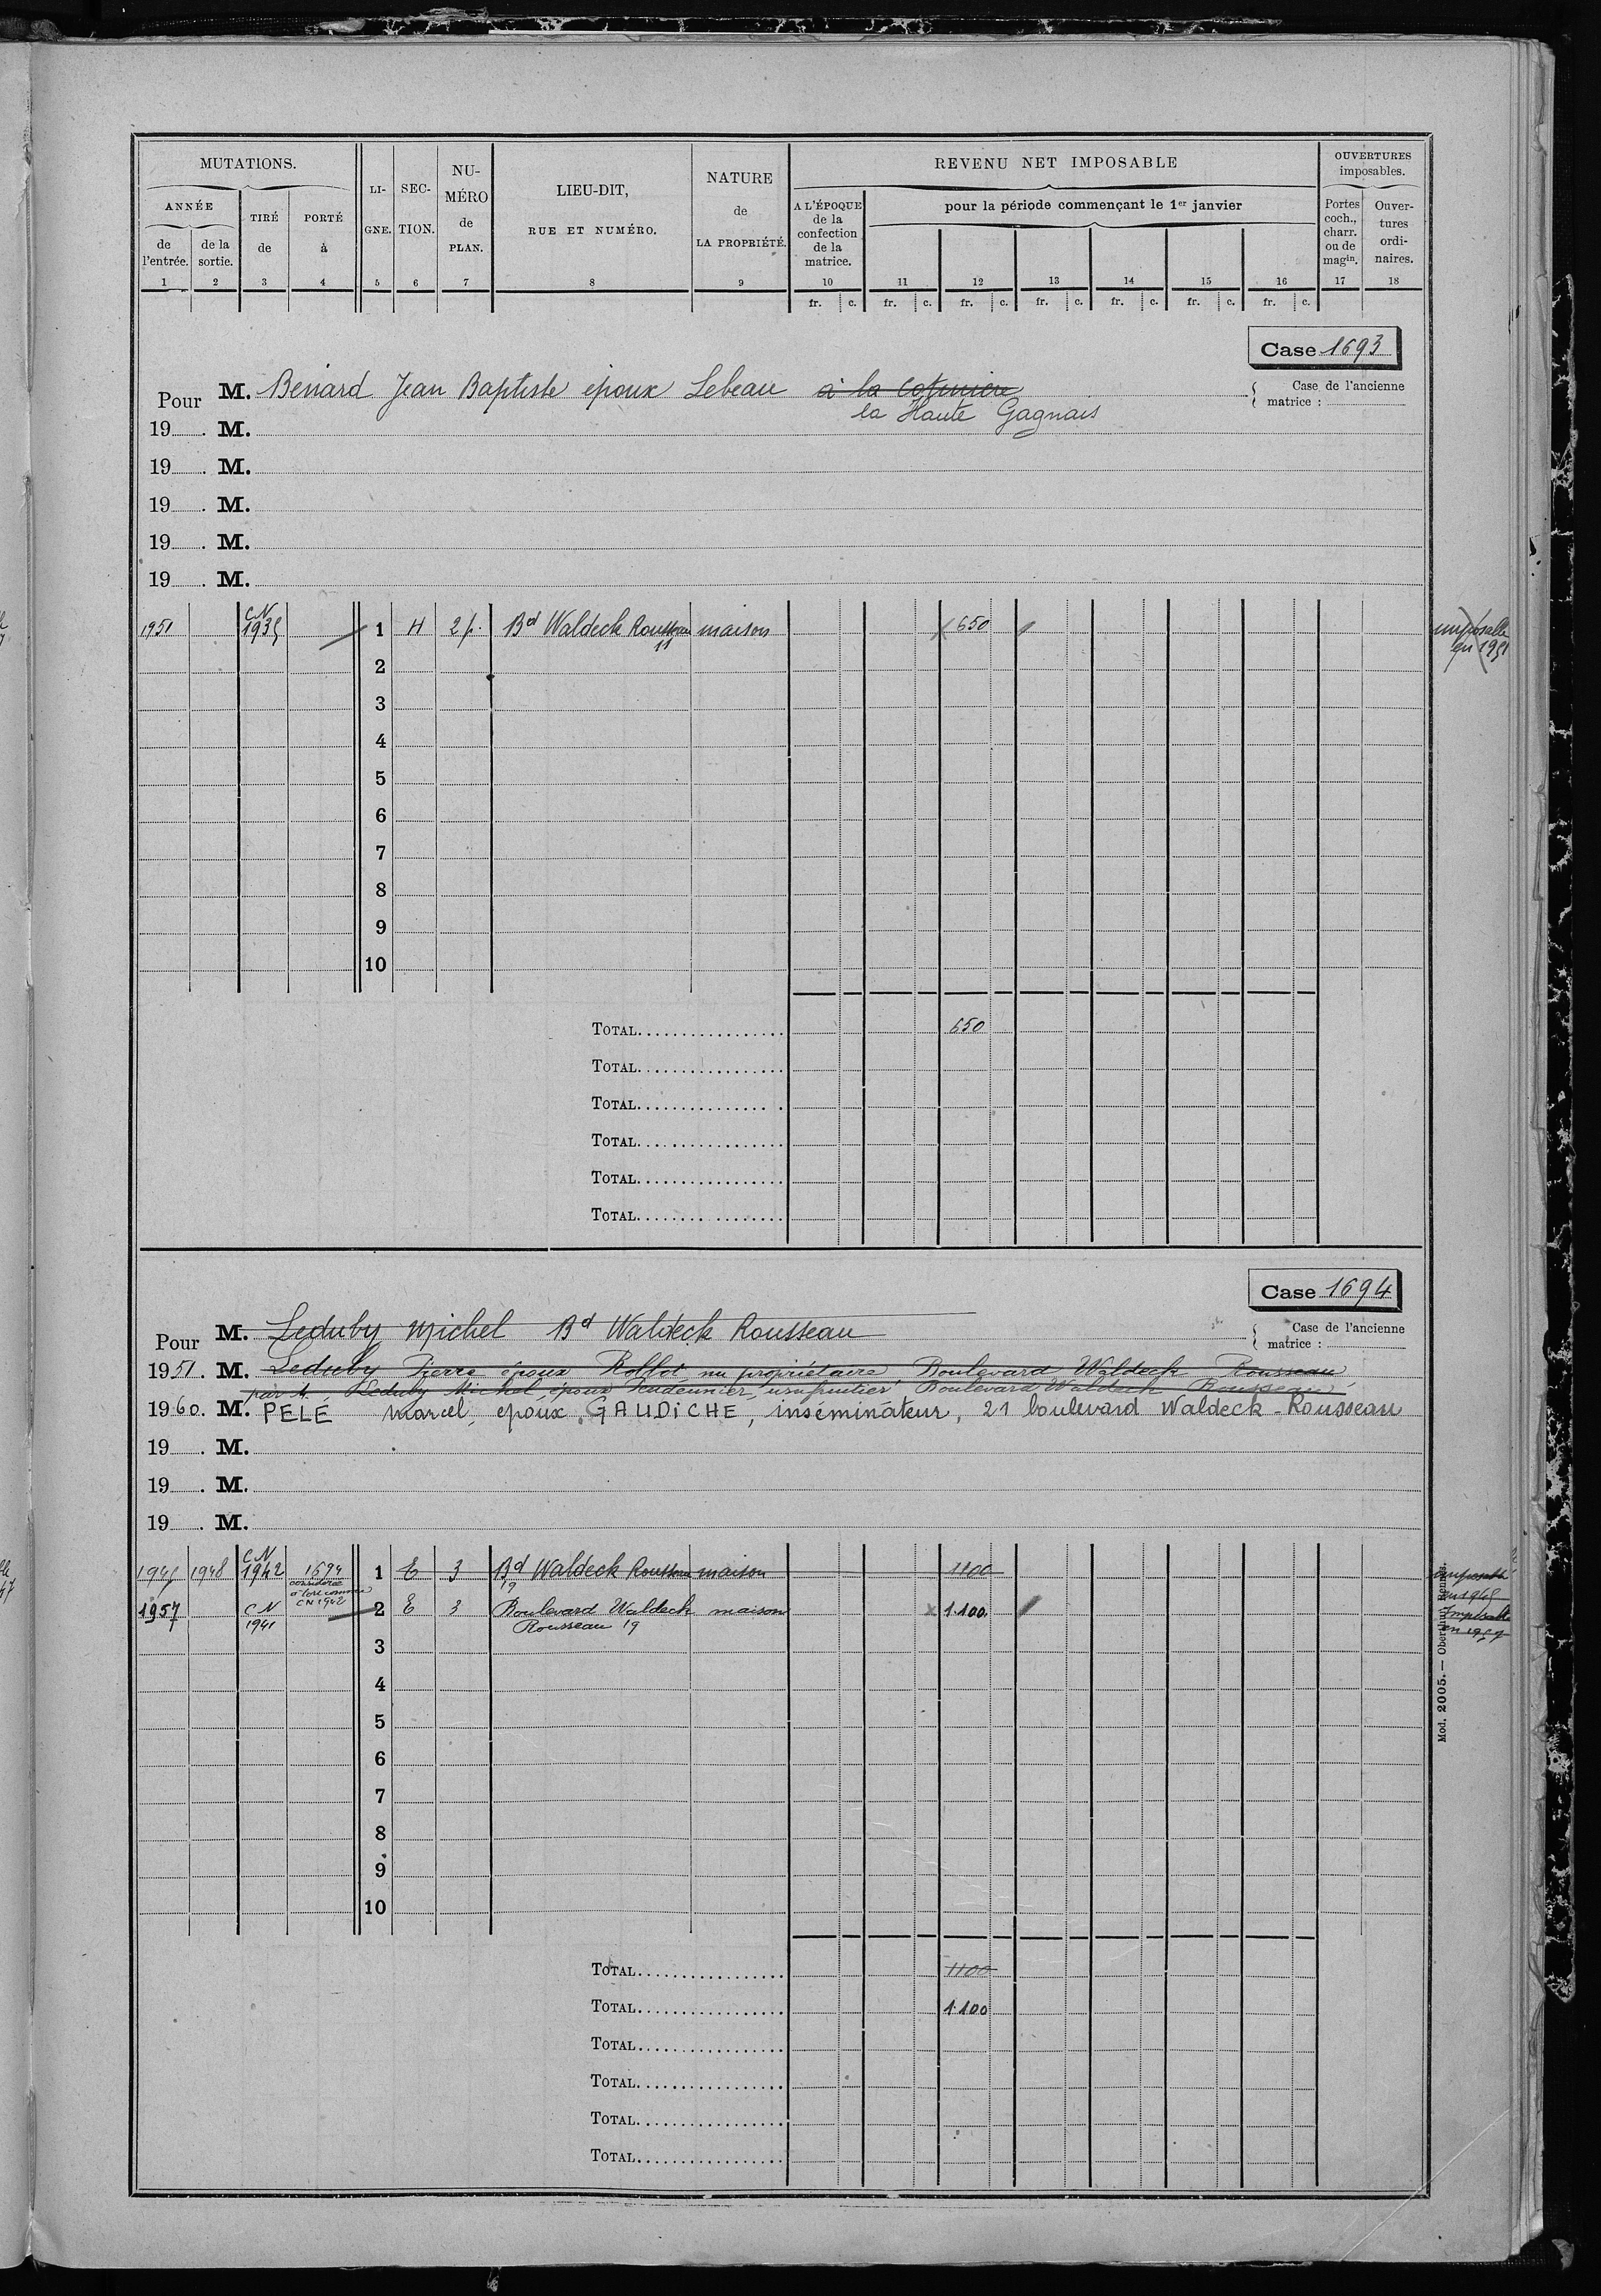 MUTATIONS.
ANNÉE
de l'entrée.
de la sortie.
TIRÉ de
PORTÉ à
LI- GNE.
SEC- TION.
NU- MÉRO de PLAN.
LIEU-DIT, RUE ET NUMÉRO.
NATURE de LA PROPRIÉTÉ.
REVENU NET IMPOSABLE
A L'ÉPOQUE de la confection de la matrice.
pour la période commençant le 1er janvier
OUVERTURES imposables.
Portes coch., charr. ou de magin.
Ouver- tures ordi- naires.
1 2 3 4 5 6 7 8 9 10 11 12 13 14 15 16 17 18
fr. c. fr. c. fr. c. fr. c. fr. c. fr. c. fr. c.
Case 1693
Pour M. Benard Jean Baptiste époux Lebeau à la
Case de l'ancienne matrice :
la Haute Gagnais
19 . M.
19 . M.
19 . M.
19 . M.
19 . M.
CN
1951 1935 1 H 2p. Bd Waldeck Rousseau maison 650
11
imposable en 1951
2
3
4
5
6
7
8
9
10
TOTAL 650
TOTAL
TOTAL
TOTAL
TOTAL
TOTAL
Case 1694
Pour M. Leduby Michel Bd Waldeck Rousseau
Case de l'ancienne matrice :
1951. M. Leduby Pierre époux Rollot nu propriétaire Boulevard Waldeck Rousseau
par M. Leduby Michel époux usufruitier Boulevard Waldeck Rousseau
1960. M. PELE Marcel, époux GAUDICHE, inséminateur, 21 boulevard Waldeck-Rousseau
19 . M.
19 . M.
19 . M.
CN
1948 1942 1694 1 E 3 Bd Waldeck Rousseau maison 1100
considérée CN 1942
19
1957 CN 2 E 3 Boulevard Waldeck maison 1.100
1941 Rousseau 19
Imposable en 1957
3
4
5
6
7
8
9
10
TOTAL 1100
TOTAL 1.100
TOTAL
TOTAL
TOTAL
TOTAL
Mod. 2005. — Oberthur, Rennes.